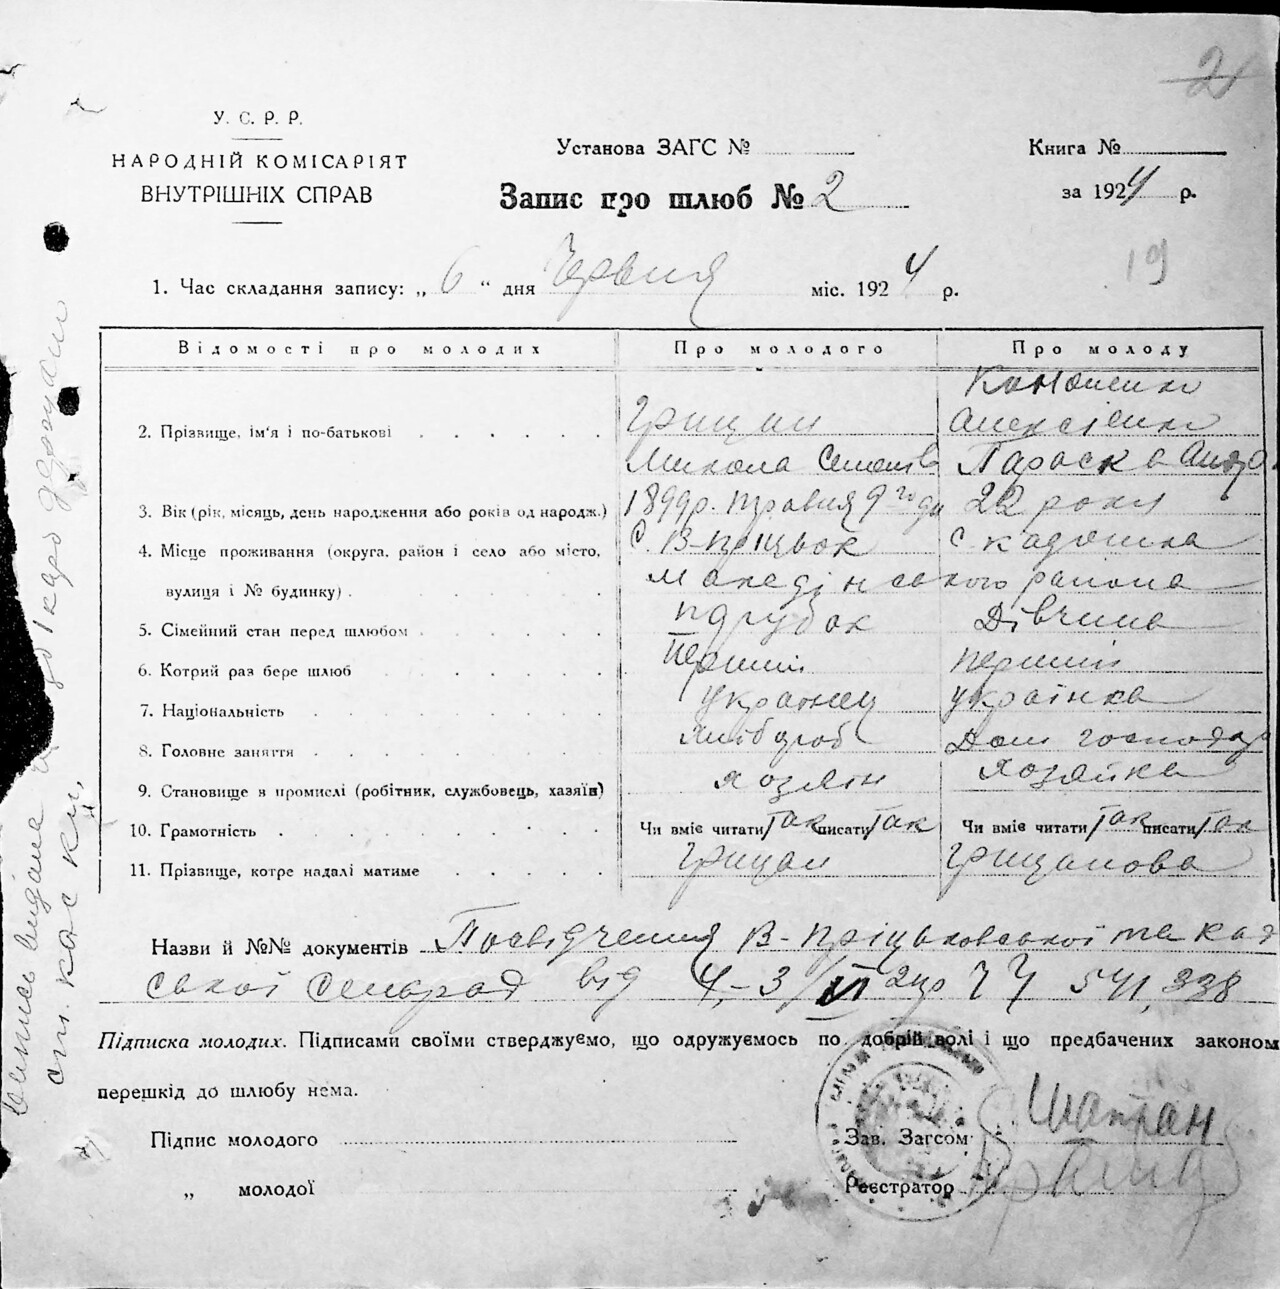 2
У. С. Р. Р.
НАРОДНІЙ КОМІСАРІЯТ
ВНУТРІШНІХ СПРАВ
Установа ЗАГС №
Книга №
Запис про шлюб № 2
за 1924 р.
19
1. Час складання запису: „ 6 “ дня Червня міс. 1924 р.
Відомості про молодих Про молодого Про молоду
2. Прізвище, ім'я і по-батькові Грицан Кононенко Алексієнко
Микола Семенів Параска
3. Вік (рік, місяць, день народження або років од народж.) 1899 р. травня 9 го дн 22 роки
4. Місце проживання (округа, район і село або місто, с. В-Прицьок с. Кадошка
вулиця і № будинку) району
5. Сімейний стан перед шлюбом парубок Дівчина
6. Котрий раз бере шлюб Перший перший
7. Національність українец українка
8. Головне заняття хлібороб Дом господар
9. Становище в промислі (робітник, службовець, хазяїн) хозяін хозяйка
10. Грамотність Чи вміє читати так писати так Чи вміє читати так писати так
11. Прізвище, котре надалі матиме Грицан Грицанова
Назви й №№ документів Посвідчення В-Пріцьковської та Кад
ської сельрад від 4,-3/VI 24р 541, 338
Підписка молодих. Підписами своїми стверджуємо, що одружуємось по добрій волі і що предбачених законом
перешкід до шлюбу нема.
Підпис молодого Зав. Загсом Шапран
„ молодої Реєстратор